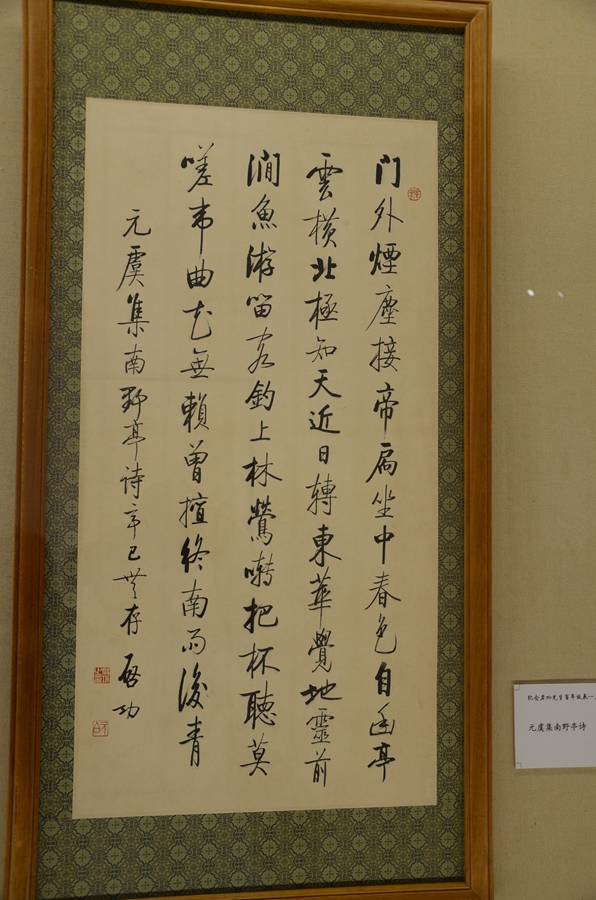 門外煙塵接帝扃坐中春色自幽亭
雲橫北極知天近日轉東華覺地靈前
澗魚游留客釣上林鶯囀把杯聽莫
嗟韦曲花無賴曾擅終南雨後青
元虞集南野亭诗辛巳存啟功
纪念启功先生百年诞辰—
元虞集南野亭诗